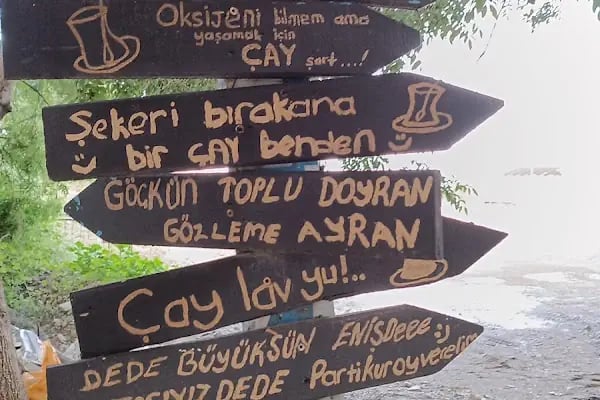 Oksijeni bilmem ama
yaşamak için
ÇAY şart....!
Şekeri bırakana
bir ÇAY benden
GÖÇKÜN TOPLU DOYRAN
GÖZLEME AYRAN
Çay lâv yu!..
DEDE BÜYÜKSÜN ENİSDEDE :)
DEDE Partikuroyverelim